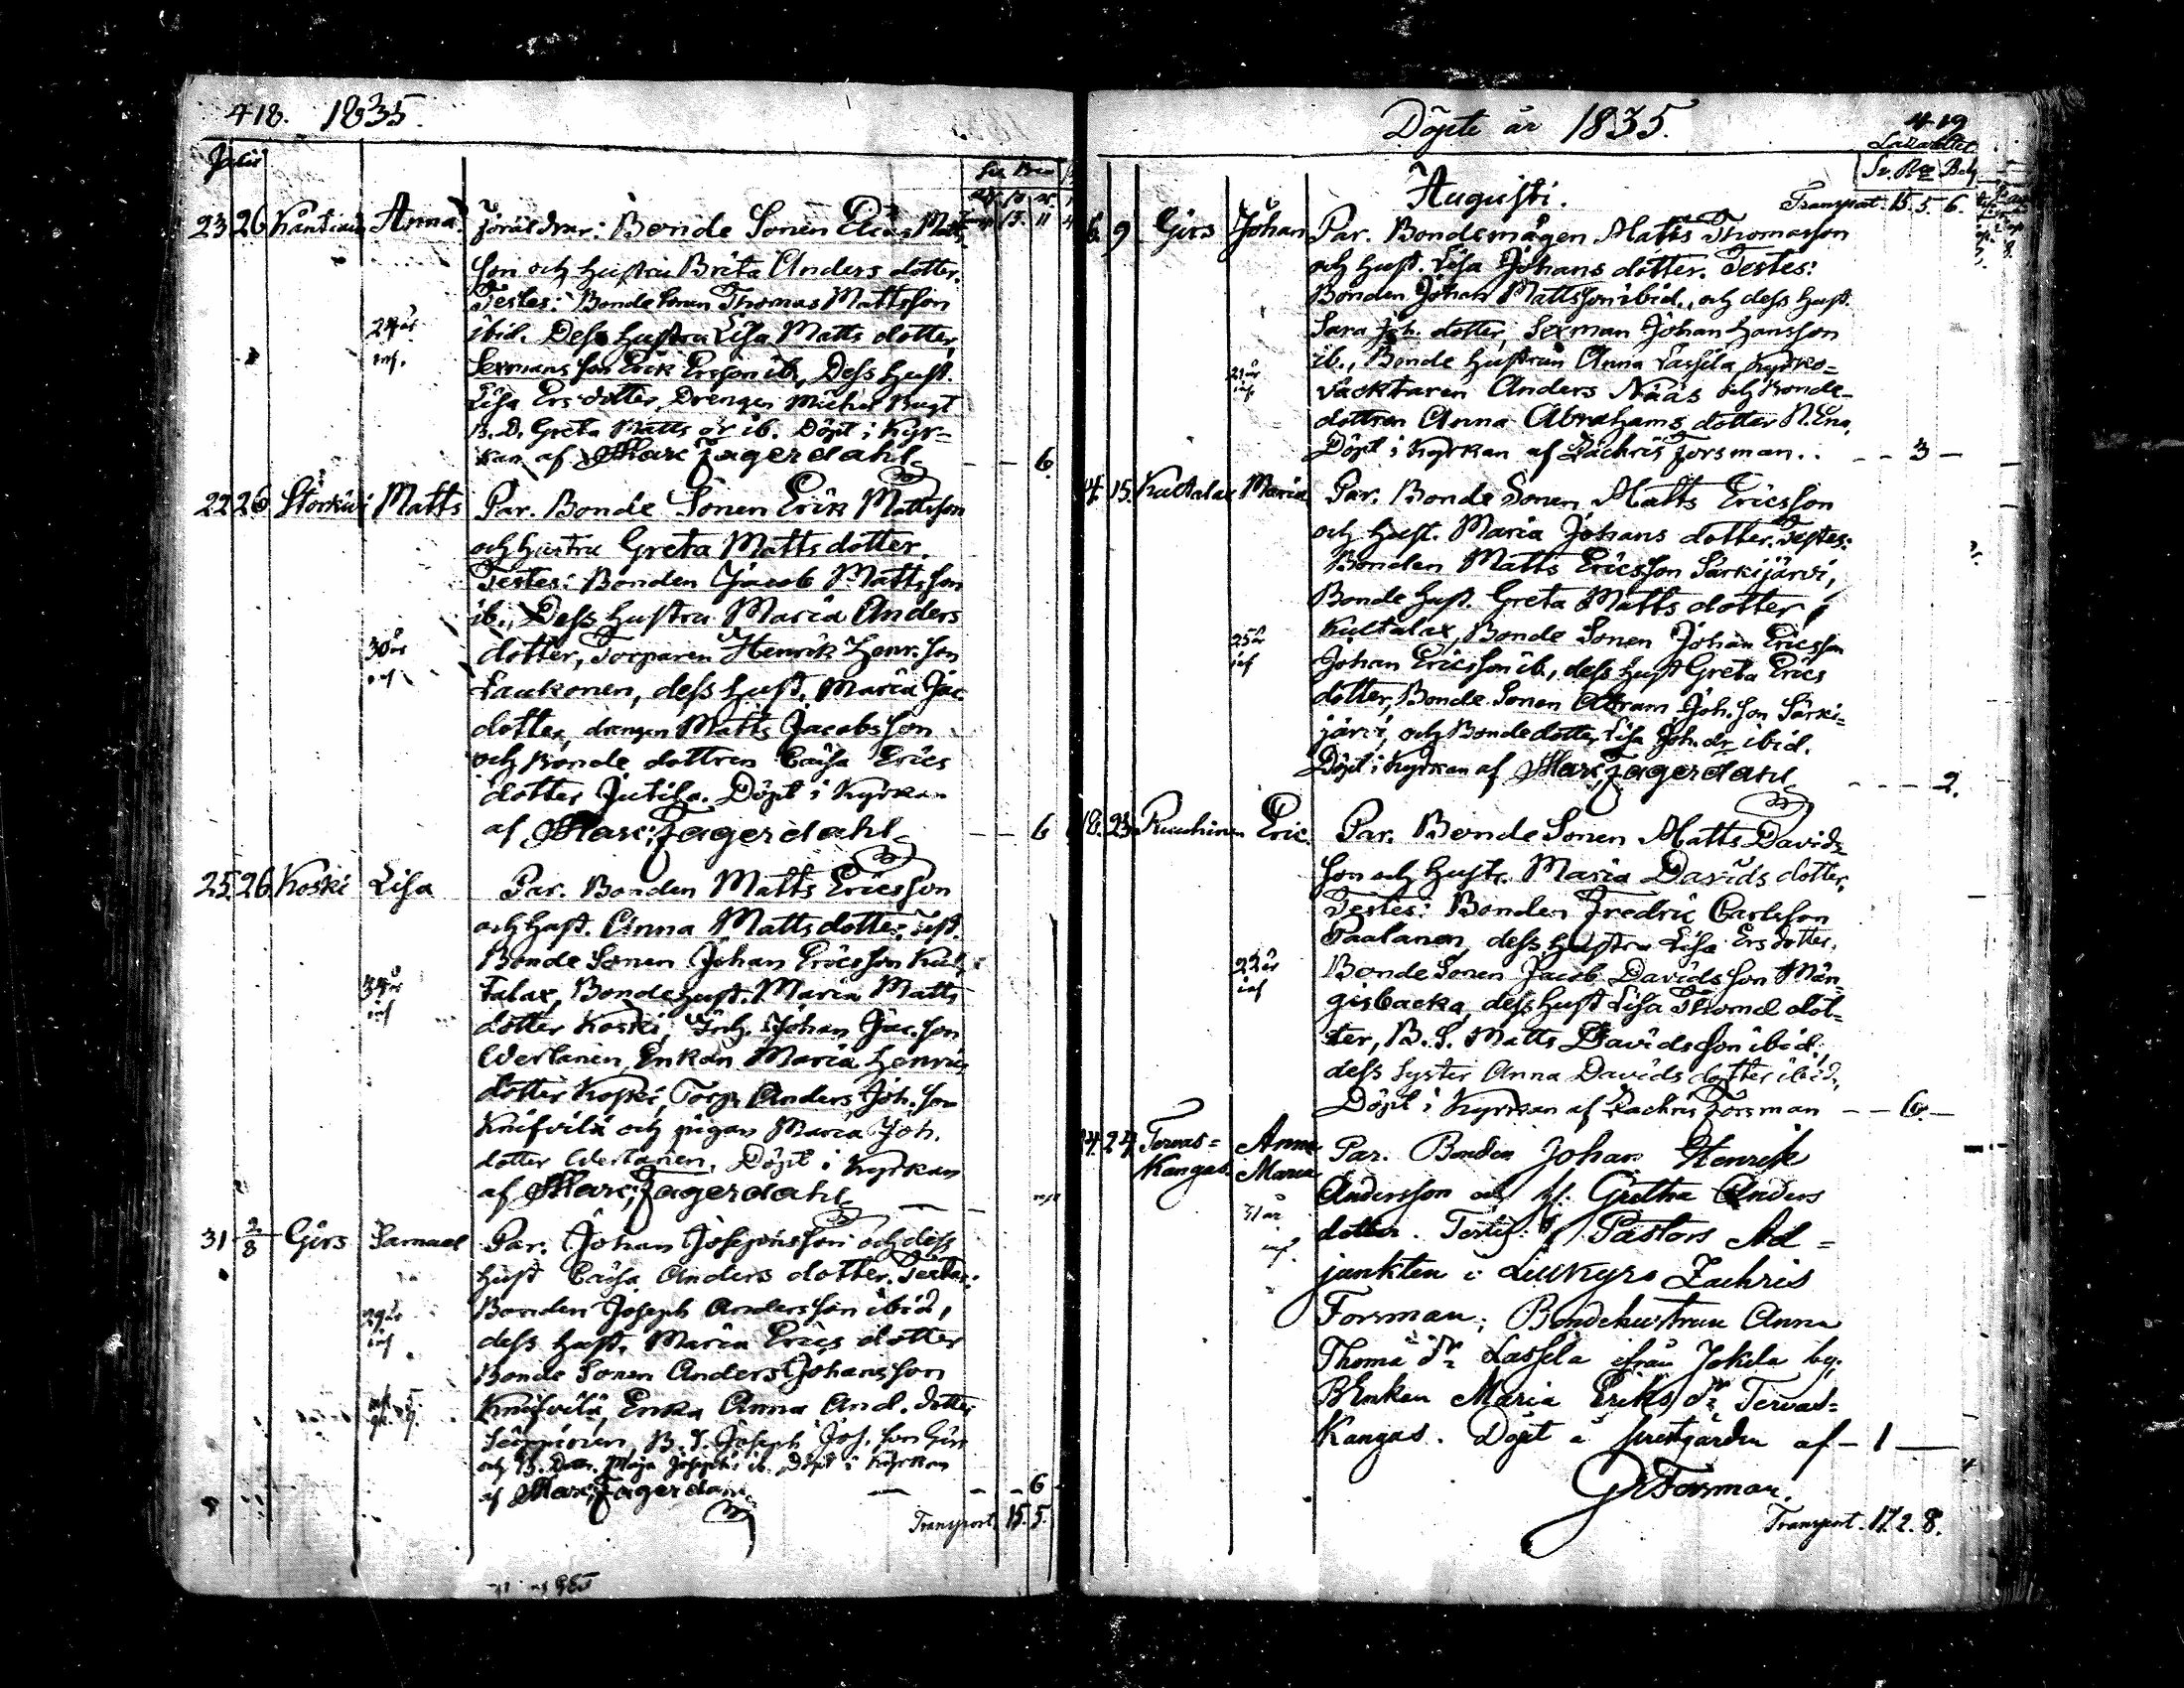 418. 1835.
Julii
23 26 Anna Föräldrar: Bonde Sonen Elias Matts
son och hustru Brita Anders dotter.
Testes: Bonde Sonen Thomas Mattsson
24 år ibid. Dess hustru Lisa Matts dotter,
Sexmans son Erik Ersson ib., Dess hust.
Lisa Ers dotter, Drengen Michel
B. D. Greta Matts dr ib. Döpt i Kyr-
kan af Marc: Fagerdahl 6.
22 26 Matts Par. Bonde Sonen Erik Mattsson
och hustru Greta Matts dotter.
Testes: Bonden Jacob Mattsson
ib., Dess hustru Maria Anders
30 år dotter, Torparen Henrik Henr. son
Laukonen, dess hust. Maria Jac.
dotter, drengen Matts Jacobsson
och Bonde dottren Caisa Erics
dotter Jutila. Döpt i Kyrkan
af Marc: Fagerdahl 6
25 26 Koski Lisa Par. Bonden Matts Ericsson
och hust. Anna Matts dotter. Test.
Bonde Sonen Johan Ericsson Kul-
talax, Bonde hust. Maria Matts
dotter Koski, Johan Jac. son
Wertanen, Enkan Maria Henrics
dotter Koski, Torp. Anders Joh. son
Knifvilä och pigan Maria Joh.
dotter Wertanen. Döpt i Kyrkan
af Marc: Fagerdahl
31 2/8 Girs Samuel Par. Johan Josephsson och dess
hust Caisa Anders dotter. Testes:
29 år Bonden Joseph Andersson ibid,
dess hust. Maria Erics dotter
Bonde Sonen Anders Johansson
Knifvilä, Enka Anna And. dotter
B. S. Joseph Jos. son Girs
och B. Dottr. Maja Josephs ib. Döpt i Kyrkan
af Marc: Fagerdahl 6
Transport 15. 5.
Döpte år 1835. 419
Lazarettet
Augusti. Transport. 15. 5. 6.
6. 9 Girs Johan Par. Bondemågen Matts Thomasson
och hust. Lisa Johans dotter. Testes:
Bonden Johan Mattsson ibid., och dess hust.
Sara Joh. dotter, Sexman Johan Hansson
21 år ib., Bonde hustrun Anna Lassila, Kyrko-
väcktaren Anders Nääs och Bonde-
dottren Anna Abrahams dotter
Döpt i Kyrkan af Zachris Forsman.. 3
15. Kultalax Maria Par. Bonde Sonen Matts Ericsson
och hust. Maria Johans dotter. Testes:
Bonden Matts Ericsson Särkijärvi,
Bonde hust. Greta Matts dotter
25 år Kultalax, Bonde Sonen Johan Ericsson
Johan Ericsson ib., dess hust Greta Erics
dotter, Bonde Sonen Abram Joh. son Särki-
järvi, och Bonde dotter Lisa Joh. dr ibid.
Döpt i Kyrkan af Marc: Fagerdahl 2.
18. 23 Eric. Par. Bonde Sonen Matts Davids
son och hustr. Maria Davids dotter,
Testes: Bonden Fredric Carlsson
Paalanen, dess hustru Lisa Ers dotter.
22 år Bonde Sonen Jacob Davidsson Män-
gisbacka, dess hust Lisa Thomæ dot-
ter, B. S. Matts Davidsson ibid.,
dess Syster Anna Davids dotter ibid,
Döpt i Kyrkan af Zachris Forsman 6.
24 Tervas- Anna Par. Bonden Johan Henrik
Kangas. Maria Andersson och h. Gretha Anders
31 år dotter. Testes: Pastors Ad-
junkten i Lillkyro Zachris
Forsman; Bondehustrun Anna
Thomä dr Lassila ifrån Jokela by,
BEnkan Maria Eriks dr Tervas-
Kangas. Döpt å prestgården af 1
Forsman.
Transport. 17. 2. 8.